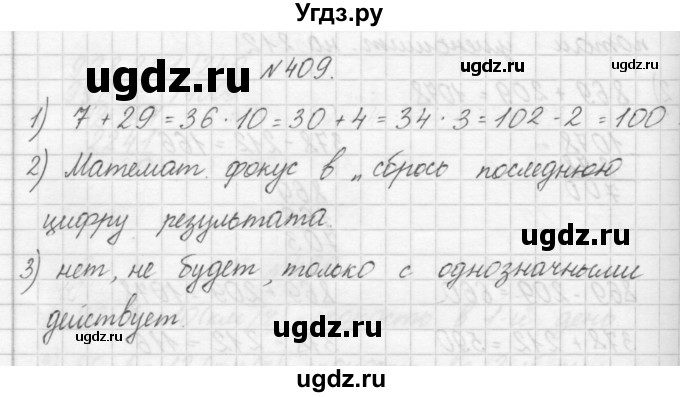 Угдз.ру
№409.
1) 7 + 29 = 36 · 10 = 30 + 4 = 34 · 3 = 102 - 2 = 100
2) Математ. фокус в „ сбрось последнюю
цифру результата.
3) нет, не будет, только с однозначными
действует.
ugdz.ru
ugdz.ru
ugdz.ru
ugdz.ru
ugdz.ru
ugdz.ru
ugdz.ru
ugdz.ru